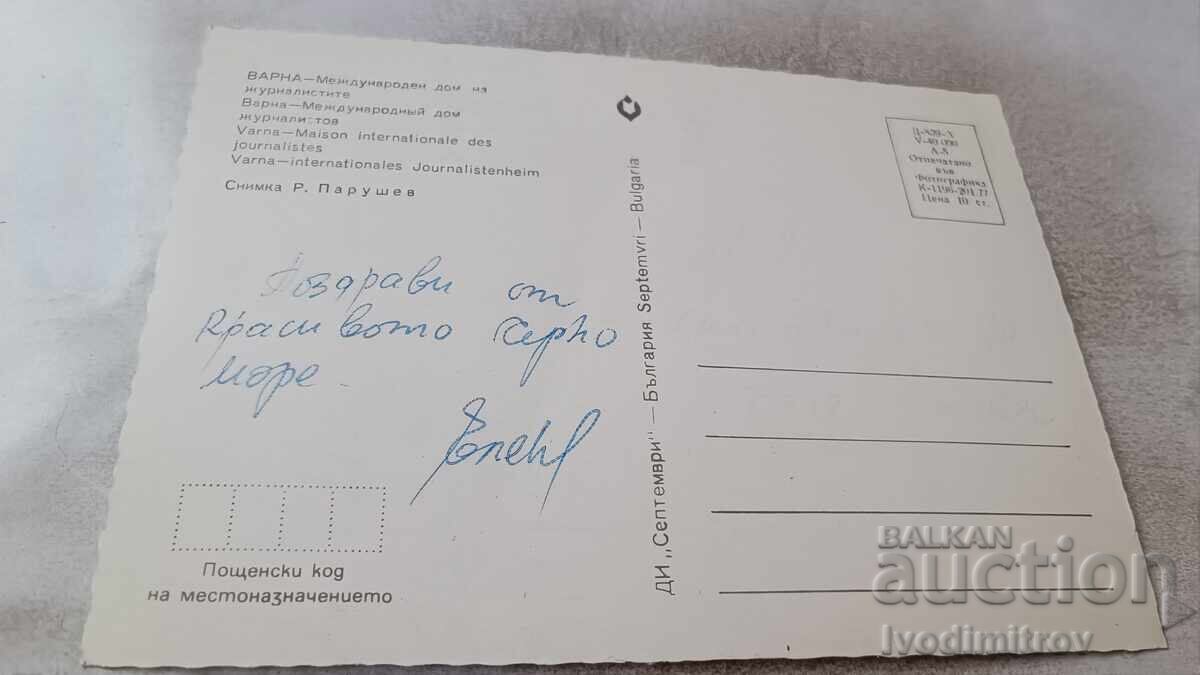 ВАРНА—Международен дом на
журналистите
Варна—Международный дом
журналистов
Varna—Maison internationale des
journalistes
Varna—internationales Journalistenheim
Снимка Р. Парушев
Поздрави от
Красивото Черно
море.
Пощенски код
на местоназначението
ДИ „Септември" — България Septemvri — Bulgaria
А-5
Отпечатано
във
Фотографика
Цена 10 ст.
BALKAN
auction
Ivodimitrov